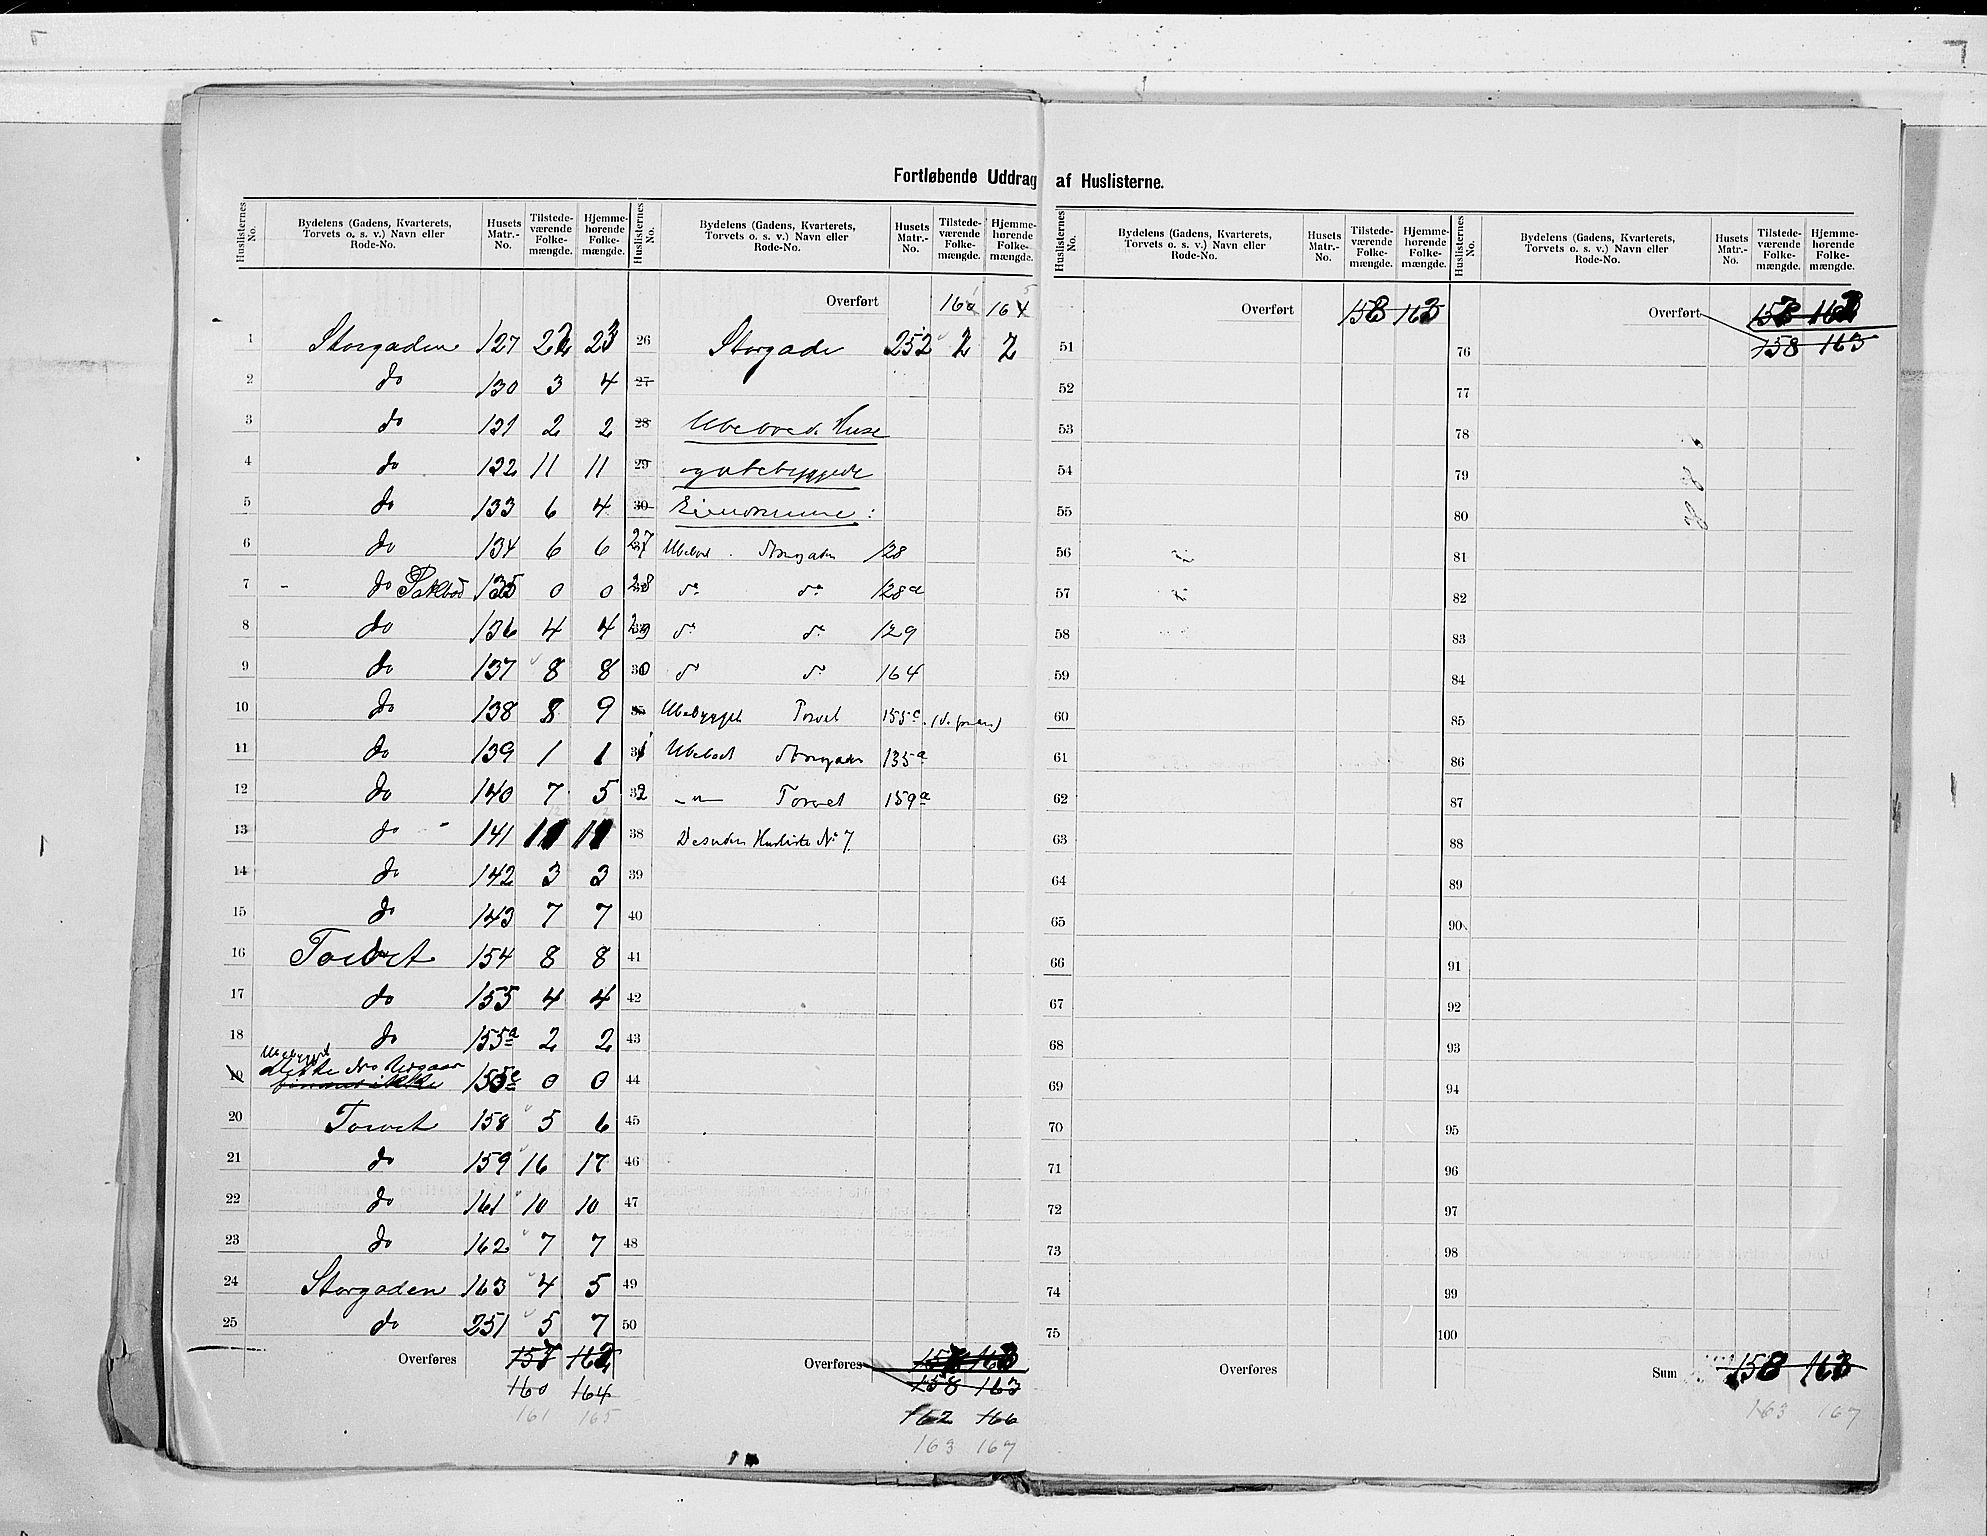 Fortløbende Uddrag af Huslisterne.
Huslisternes No. Bydelens (Gadens, Kvarterets, Torvets o. s. v.) Navn eller Rode-No. Husets Matr.-No. Tilstedeværende Folkemængde. Hjemmehørende Folkemængde.
1 Storgaden 127 22 23
2 do 130 3 4
3 do 131 2 2
4 do 132 11 11
5 do 133 6 4
6 do 134 6 6
7 - do Pakbod 135 0 0
8 do 136 4 4
9 do 137 8 8
10 do 138 8 9
11 do 139 1 1
12 do 140 7 5
13 do 141 11 11
14 do 142 3 3
15 do 143 7 7
16 Torvet 154 8 8
17 do 155 4 4
18 do 155a 2 2
Ubebygget
19 155c 0 0
20 Torvet 158 5 6
21 do 159 16 17
22 do 161 10 10
23 do 162 7 7
24 Storgaden 163 4 5
25 do 251 5 7
Overføres 157 162
160 164
161 165
Huslisternes No. Bydelens (Gadens, Kvarterets, Torvets o. s. v.) Navn eller Rode-No. Husets Matr.-No. Tilstedeværende Folkemængde. Hjemmehørende Folkemængde.
Overført 161 165
26 Storgade 252 2 2
27
28 Ubeboede Huse
29 og ubebyggede
30 Eiendomme :
27 Ubebod Storgaden 128
28 do do 128a
29 do do 129
30 do do 164
35 Ubebygget Torvet 155c
31 Ubebod Storgaden 135a
32 -"- Torvet 159a
38 Desuden Husliste No 7
39
40
41
42
43
44
45
46
47
48
49
50
Overføres 163
158 163
162 166
163 167
Huslisternes No. Bydelens (Gadens, Kvarterets, Torvets o. s. v.) Navn eller Rode-No. Husets Matr.-No. Tilstedeværende Folkemængde. Hjemmehørende Folkemængde.
Overført 158 163
51
52
53
54
55
56
57
58
59
60
61
62
63
64
65
66
67
68
69
70
71
72
73
74
75
Overføres
Huslisternes No. Bydelens (Gadens, Kvarterets, Torvets o. s. v.) Navn eller Rode-No. Husets Matr.-No. Tilstedeværende Folkemængde. Hjemmehørende Folkemængde.
Overført
158 163
76
77
78
79
80
81
82
83
84
85
86
87
88
89
90
91
92
93
94
95
96
97
98
99
100
Sum 158 163
163 167